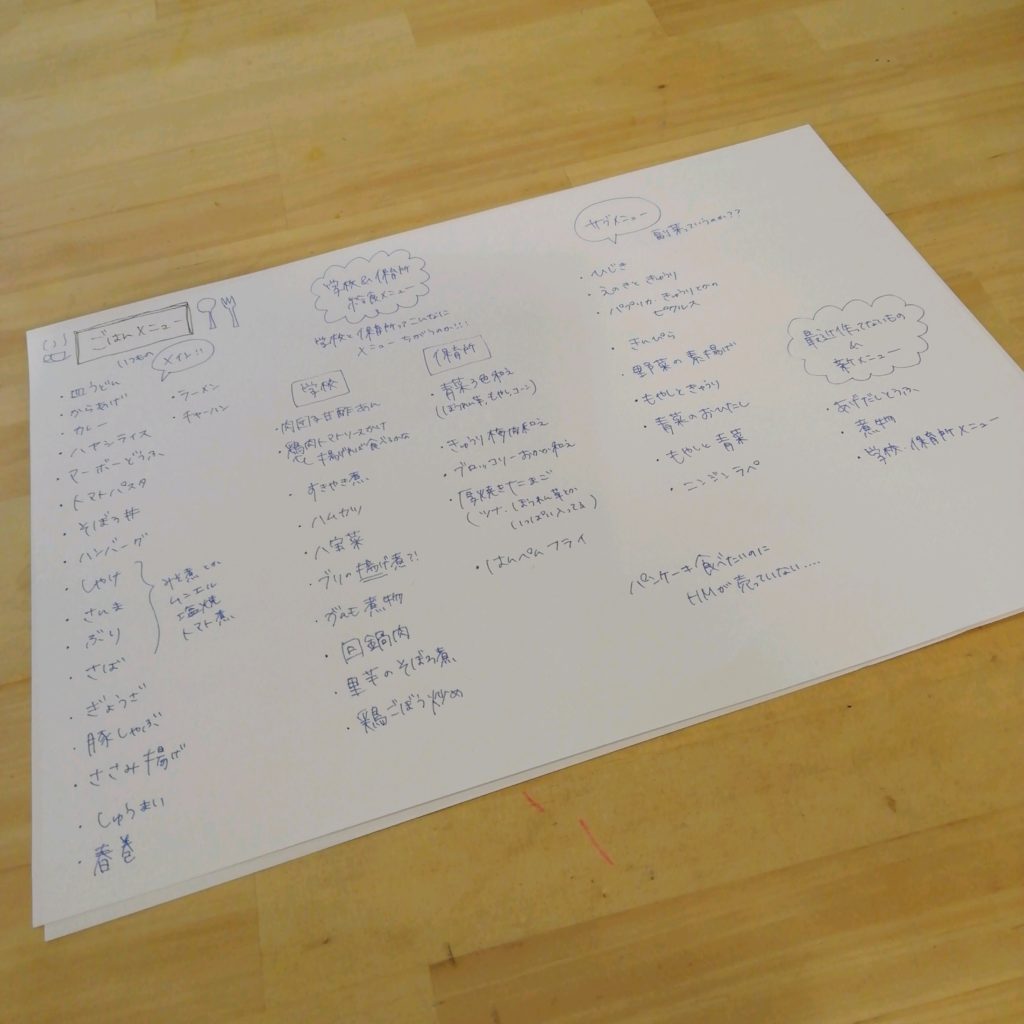 ごはんメニュー
いつもの
メイン!!
・皿うどん
・からあげ
・カレー
・ハヤシライス
・マーボーどうふ
・トマトパスタ
・そぼろ丼
・ハンバーグ
・しゃけ
・さんま
・ぶり
・さば
みそ煮とか
ムニエル
塩焼
トマト煮
・ぎょうざ
・豚しゃぶ
・ささみ揚げ
・しゅうまい
・春巻
・ラーメン
・チャーハン
学校&保育所
給食メニュー
学校と保育所ってこんなに
メニューちがうのか!!!
学校
・肉団子甘酢あん
・鶏肉トマトソースかけ
揚げれば食べるかな
・すきやき煮
・ハムカツ
・八宝菜
・ブリの揚げ煮?!
・がんも煮物
・回鍋肉
・里芋のそぼろ煮
・鶏ごぼう炒め
保育所
・青菜3色和え
(ほうれん草,もやし,コーン)
・きゅうり梅肉和え
・ブロッコリーおかか和え
・厚焼きたまご
(ツナ、ほうれん草とか
いっぱい入ってる)
・はんぺんフライ
サブメニュー
副菜っていうのか??
・ひじき
・えのきときゅうり
・パプリカ・きゅうりとかの
ピクルス
・きんぴら
・野菜の素揚げ
・もやしときゅうり
・青菜のおひたし
・もやしと青菜
・ニンジンラペ
最近作ってないもの
&
新メニュー
・あげだしとうふ
・煮物
・学校・保育所メニュー
パンケーキ食べたいのに
HMが売っていない....